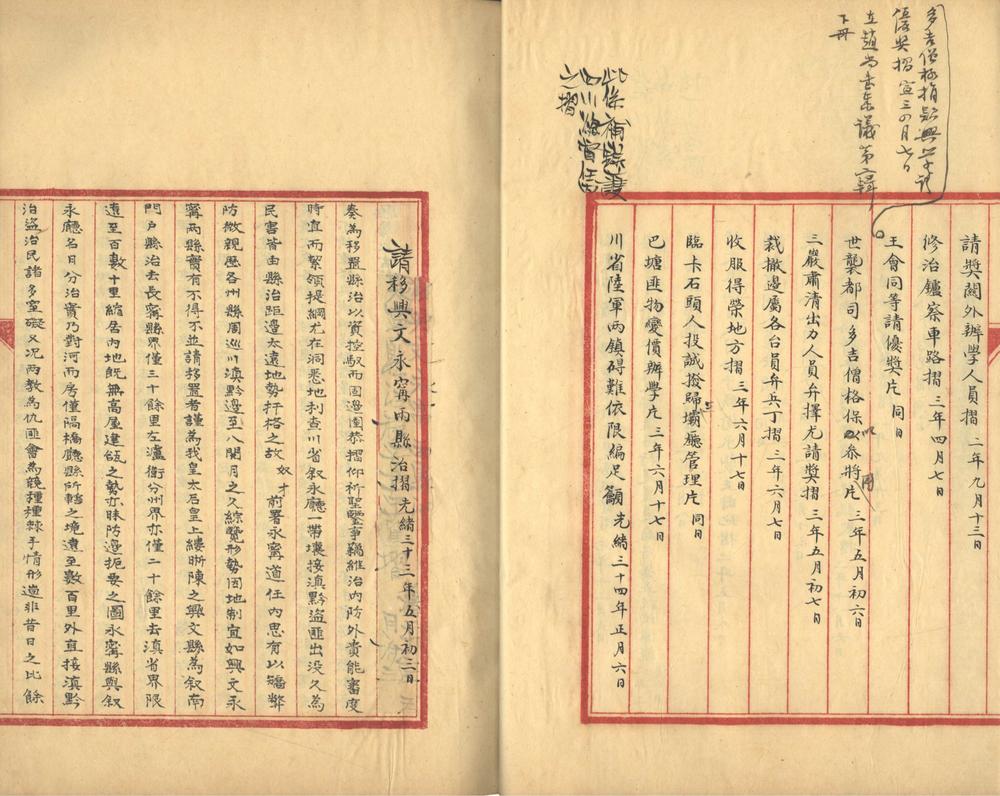 多吉僧格捐款興學請
伍品獎摺宣三四月七日
在趙尚書奏議第六輯
下冊
請獎關外辦學人員摺 二年九月十三日
修治鑪察車路摺 三年四月七日
王會同等請優獎片 同日
世襲都司多吉僧格保以參將用片 三年五月初六日
三巖肅清出力人員弁擇尤請獎摺 三年五月初七日
裁撤邊廣各台員弁兵丁摺 三年六月七日
收服得榮地方摺 三年六月十七日
臨卡石頭人投誠撥歸三壩廳管理片 同日
巴塘匪物變價辦學片 三年六月十七日
川省陸軍兩鎮碍難依限編足籲 光緒三十四年正月六日
此係補錄護
四川總督任
之摺
請移興文永甯兩縣治摺 光緒三十三年五月初三日
奏為移置縣治以資控馭而固邊圉恭摺仰祈聖鑒事竊維治內防外貴能審度
時宜而絜領提綱尤在洞悉地利查川省叙永廳一帶壤接滇黔盜匪出沒久為
民害皆由縣治距邊太遠地勢扞格之故奴才前署永甯道任內思有以矯弊
防微親歷各州縣周巡川滇黔邊至八閱月之久綜覽形勢因地制宜如興文永
甯兩縣實有不得不並請移置者謹為我皇太后皇上縷晰陳之興文縣為叙南
門戶縣治去長甯縣界僅三十餘里左瀘衛分州界亦僅二十餘里去滇省界限
遠至百數十里縮居內地既無高屋建瓴之勢亦昧防邊扼要之圖永甯縣與叙
永廳名日分治實乃對河而居僅隔橋廳縣所轄之境遠至數百里外直接滇黔
治盜治民諸多窒礙又況兩教為仇匪會為競種種棘手情形迥非昔日之比餘